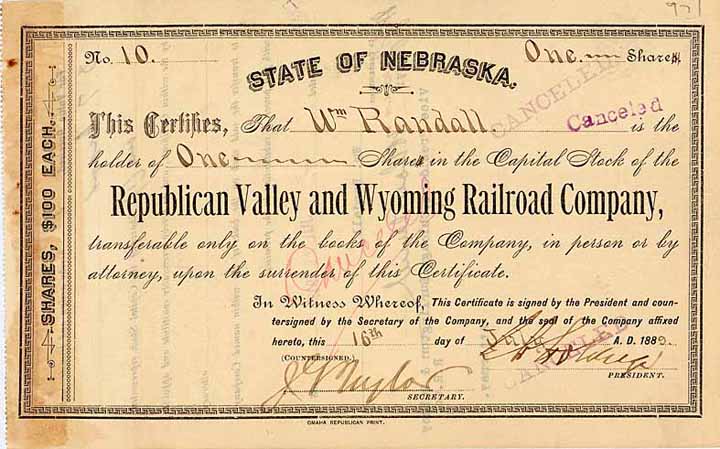 97
No. 10. One. Shares,
STATE OF NEBRASKA.
CANCELED
This Certifies, That Wm Randall Canceled is the
holder of One Shares in the Capital Stock of the
Republican Valley and Wyoming Railroad Company,
transferable only on the books of the Company, in person or by
attorney, upon the surrender of this Certificate.
Canceled
In Witness Whereof, This Certificate is signed by the President and coun-
tersigned by the Secretary of the Company, and the seal of the Company affixed
hereto, this 16th day of A. D. 1889.
CANCELED
(COUNTERSIGNED.)
PRESIDENT.
J G Taylor
SECRETARY.
OMAHA REPUBLICAN PRINT.
SHARES, $100 EACH.